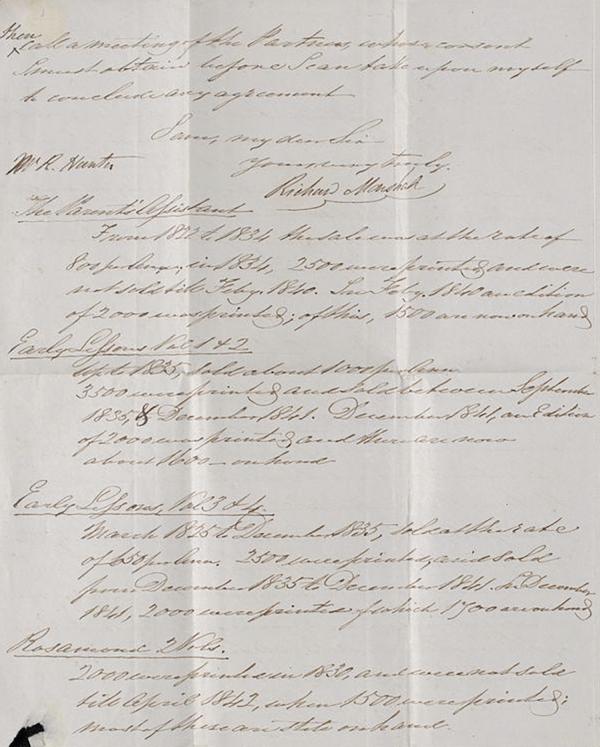 then
call a meeting of the Partners, whose consent
I must obtain before I can take upon myself
to conclude any agreement
I am, my dear Sir
Mr R. Hunter
Yours very truly.
Richard
The Parents' Assistant
From 1822 to 1834 the sale was at the rate of
800 per Ann. in 1834, 2500 were printed, and were
not sold till Feby. 1840. In Feby. 1840 an edition
of 2000 was printed; of this, 1500 are now on hand
Early Lessons Vol. 1 & 2
Up to 1835, sold about 1000 per Ann
3500 were printed, and sold between September
1835, & December 1841. December 1841, an Edition
of 2000 was printed, and there are now
about 1600 on hand
Early Lessons, Vol 3 & 4.
March 1825 to December 1835, sold at the rate
of 650 per Ann. 2500 were printed, and sold
from December 1835 to December 1841. In December
1841, 2000 were printed of which 1700 are on hand
Rosamond 2 Vols.
2000 were printed in 1830, and were not sold
till April 1842, when 1500 were printed;
most of these are still on hand.